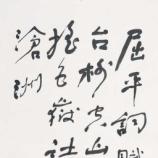 屈平詞賦
台榭空山
搖五嶽詩
滄洲